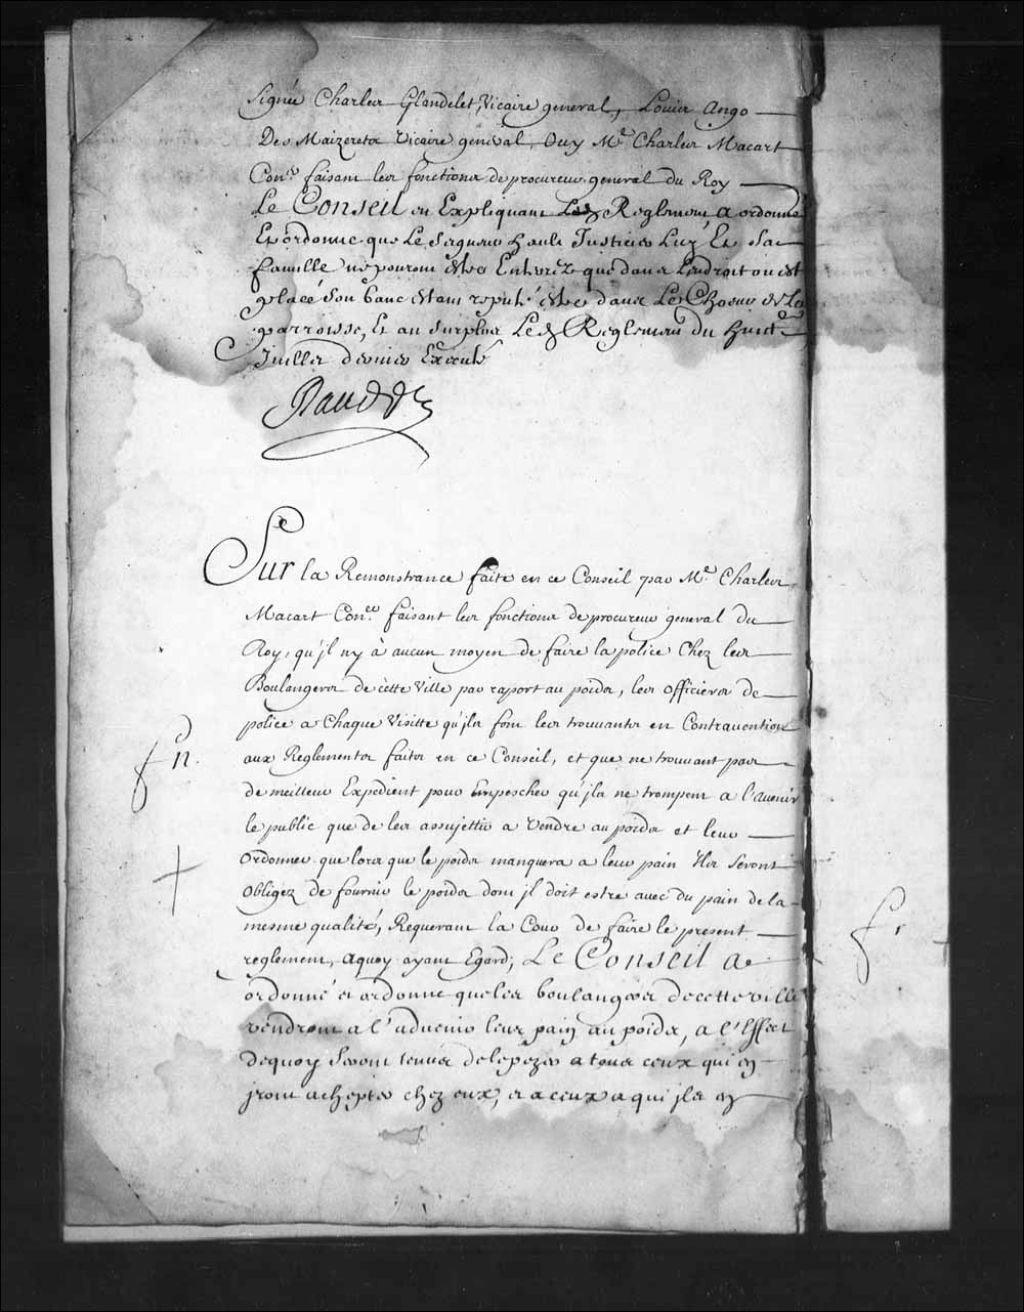 Signée Charles Glandelet, Vicaire general, Louis Ango
Des Maizerets Vicaire general, Ouy Me Charles Macart
Coner faisant les fonctions de procureur general du Roy
Le Conseil en Expliquant Led Reglement, a ordonné
Et ordonne que Le Seigneur hault Justicier Luy Et Sa
famille ne pouront estre Enterrez que dans Lendroit ou est
placé Son banc estant reputé estre dans Le Choeur de La
parroisse, Et au surplus Led Reglement du huite
Juillet dernier Executé
Sur la Remonstrance faite en ce Conseil par Me Charles
Macart Coner faisant les fonctions de procureur general du
Roy, qu'jl ny à aucun moyen de faire la police Chez les
Boulangers de cette Ville par raport au poids, les officiers de
police a Chaque Visitte qu'jls font les trouvants en Contravention
aux Reglements faits en ce Conseil, et que ne trouvant pas
de meilleur Expedient pour Empescher qu'jls ne trompent a l'avenir
le public que de les assujettir a Vendre au poids et leur
Ordonner que lors que le poids manquera a leur pain Ils Seront
Obligez de fournir le poids dont jl doit estre avec du pain de la
mesme qualité, Requerant la Cour de faire le present
reglement, aquoy ayant Egard; Le Conseil a
ordonné et ordonne que les boulangers de cette ville
vendront a l'advenir leur pain au poids, a l'Effect
dequoy Seront tenus de le pezer a tous ceux qui en
jront achepter chez eux, et a ceux a qui jls en